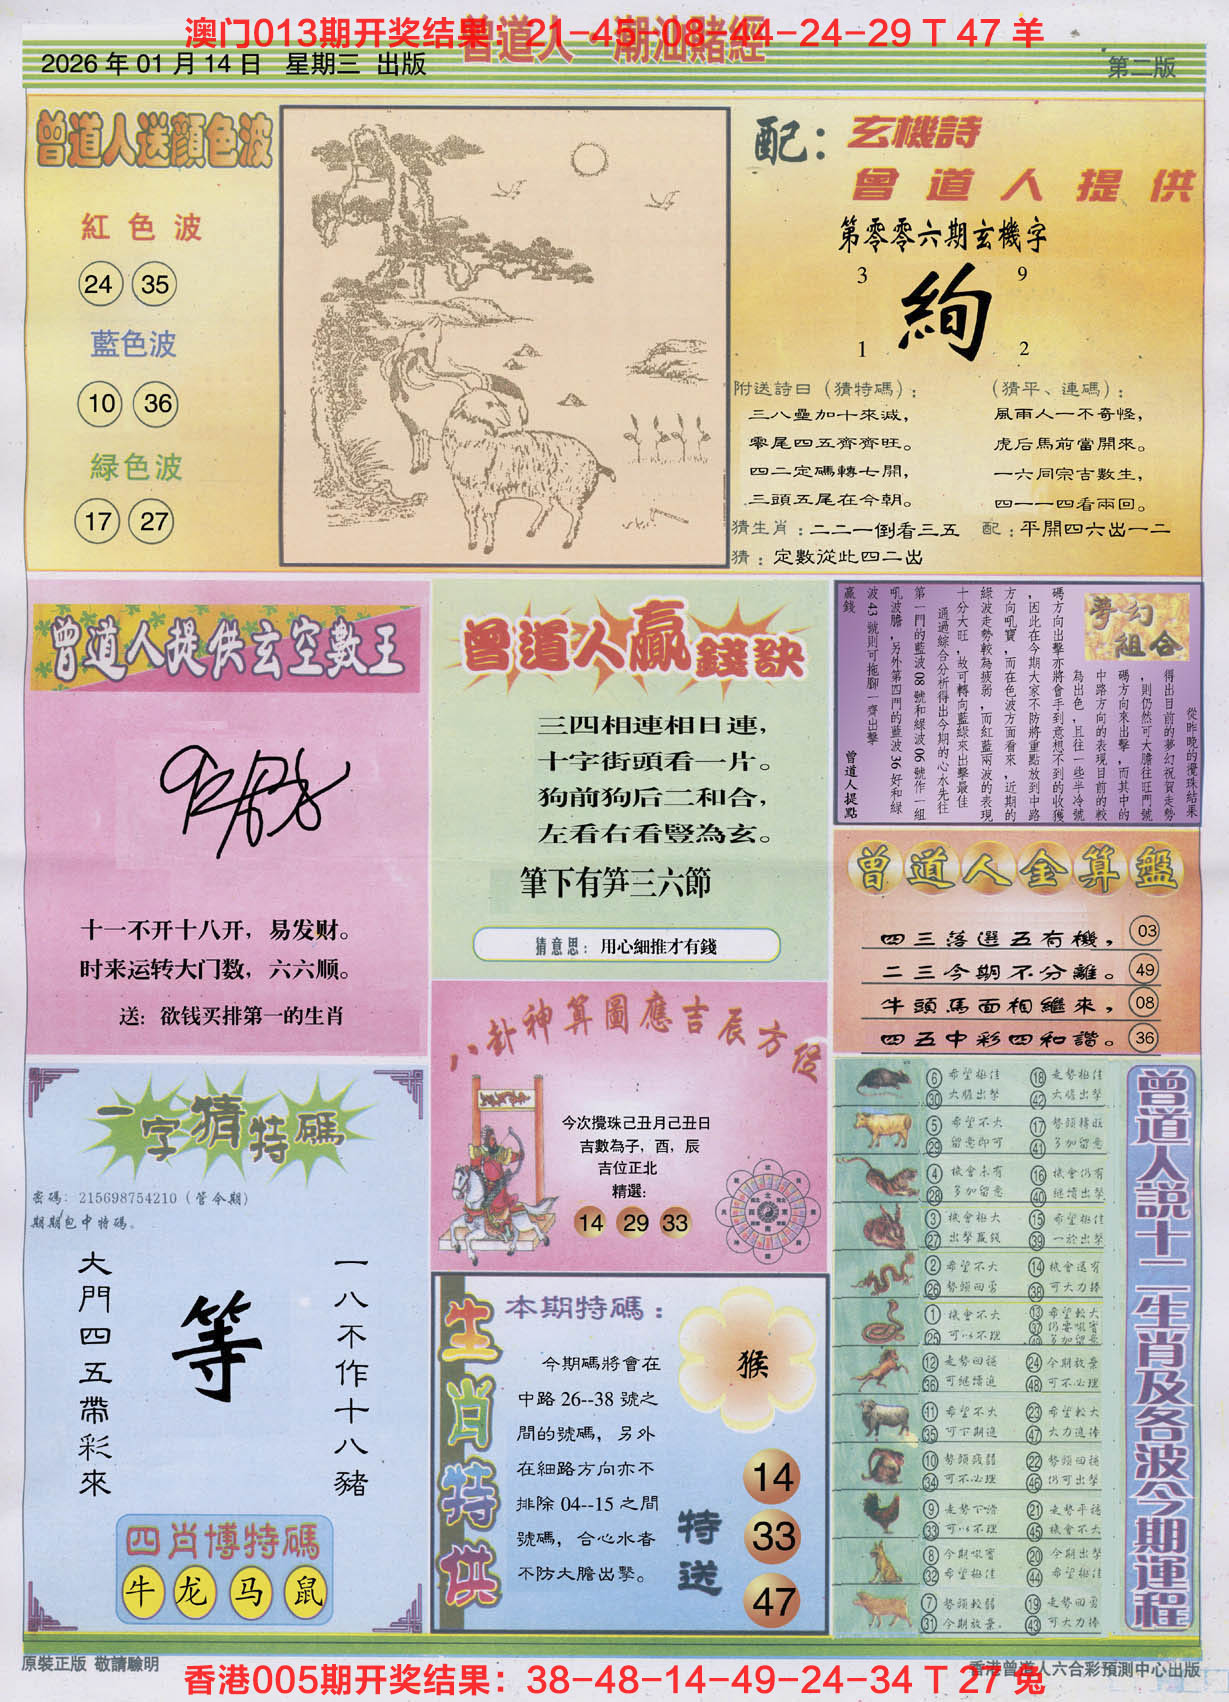 澳门013期开奖结果：21-45-08-44-24-29 T 47 羊
曾道人 潮汕賭經
2026 年 01 月 14 日 星期三 出版
第二版
曾道人送顏色波
紅色波
24 35
藍色波
10 36
緑色波
17 27
配：玄機詩
曾道人提供
第零零六期玄機字
3 9
絢
1 2
附送詩曰（猜特碼）：
三八壘加十來減，
零尾四五齊齊旺。
四二定碼轉七開，
三頭五尾在今朝。
（猜平、連碼）：
風雨人一不奇怪，
虎后馬前當開來。
一六同宗吉數生，
四一一四看兩回。
猜生肖：二二一倒看三五
配：平開四六出一二
猜：定數從此四二出
曾道人提供玄空數王
十一不开十八开，易发财。
时来运转大门数，六六顺。
送：欲钱买排第一的生肖
曾道人贏錢訣
三四相連相日連，
十字街頭看一片。
狗前狗后二和合，
左看右看豎為玄。
筆下有笋三六節
猜意思：用心細推才有錢
夢幻組合
從昨晚的攪珠結果
得出目前的夢幻祝賀走勢
，則仍然可大膽往旺門號
碼方向來出擊，而其中的
中路方向的表現目前的較
為出色，且往一些半冷號
碼方向出擊亦將會手到意想不到的收獲
，因此在今期大家不防將重點放到中路
方向吼寶，而在色波方面看來，近期的
綠波走勢較為疲弱，而紅藍兩波的表現
十分大旺，故可轉向藍綠來出擊最佳
通過綜合分析得出今期的心水先往
第一門的藍波 08 號和綠波 06 號作一組
吼波膽，另外第四門的藍波 36 好和綠
波 43 號則可拖腳一齊出擊
贏錢
曾道人提點
曾道人金算盤
四三落選五有機， 03
二三今期不分離。 49
牛頭馬面相繼來， 08
四五中彩四和諧。 36
八卦神算圖應吉辰方位
今次攪珠己丑月己丑日
吉數為子，酉，辰
吉位正北
精選：
14 29 33
一字猜特碼
密碼：215698754210（管今期）
期期包中特碼。
大門四五帶彩來
等
一八不作十八豬
四肖博特碼
牛 龙 马 鼠
生肖特供
本期特碼：
今期碼將會在
中路 26--38 號之
間的號碼，另外
在細路方向亦不
排除 04--15 之間
號碼，合心水者
不防大膽出擊。
猴
特送
14
33
47
曾道人説十二生肖及各波今期運程
6 希望極佳 18 走勢極佳
30 大膽出擊 42 大膽出擊
5 希望不大 17 勢頭轉旺
29 留意即可 41 多加留意
4 機會未有 16 機會仍有
28 多加留意 40 繼續出擊
3 機會極大 15 希望極佳
27 出擊贏錢 39 一於出擊
2 希望不大 14 機會還有
26 勢頭回勇 38 可大力捧
1 機會不大 13 希望較大
25 可以不理 37 仍要吸寶
49 多加留意
12 走勢回穩 24 今期放棄
36 可繼續追 48 可不必理
11 希望不大 23 希望較大
35 可下期追 47 大力追捧
10 勢頭疲弱 22 勢頭回穩
34 可不必理 46 仍可出擊
9 走勢下滑 21 走勢平穩
33 可以不理 45 機會不大
8 今期吸寶 20 今期出擊
32 希望極佳 44 希望極佳
7 勢頭較弱 19 走勢回勇
31 今期放棄。 43 可大力捧
原裝正版 敬請驗明
香港曾道人六合彩預測中心出版
香港005期开奖结果：38-48-14-49-24-34 T 27 兔